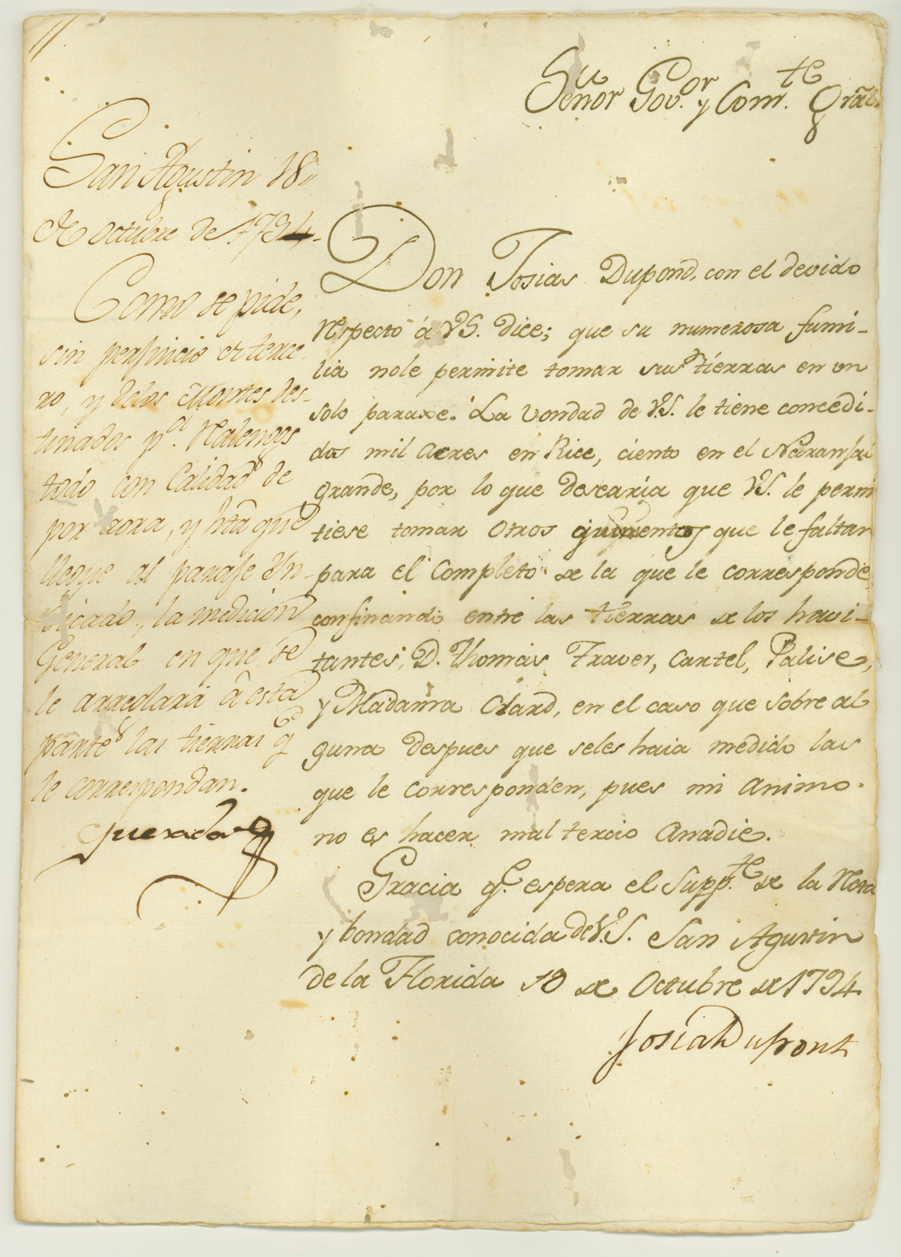 Señor Gov.or y Com.te Gral.
San Agustin 18,,
de Octubre de 1794-
Como se pide,
sin perjuicio de terce-
ro, y delos Montes des-
tinados p.a Realengos
todo con Calidad de
por aora, y hta que
llegue al paraje in-
dicado, la medicion
General en que se
le arreglará â esta
parte las tierras q
le correspondan.
Quesada
Don Josias Dupond, con el devido
Respecto á VS. dice; que su numerosa fami-
lia nole permite tomar sus tierras en un
solo paraxe. La vondad de VS. le tiene concedi-
das mil acres en Rice, ciento en el Naranjal
grande, por lo que desearia que VS. le permi
tiese tomar otros quinientos que le faltan
para el Completo de la que le corresponde
confinando entre las tierras de los havi-
tantes, D. Thomas Traver, Cartel, Palise,
y Madama Clard, en el caso que sobre al
guna despues que seles haia medido las
que le corresponden, pues mi animo
no es hacer mal tercio anadie.
Gracia q.e espera el Supp.te de la Nota
y bondad conocida de V.S. San Agustin
de la Florida 10 de Octubre de 1794
Josiah Dupont